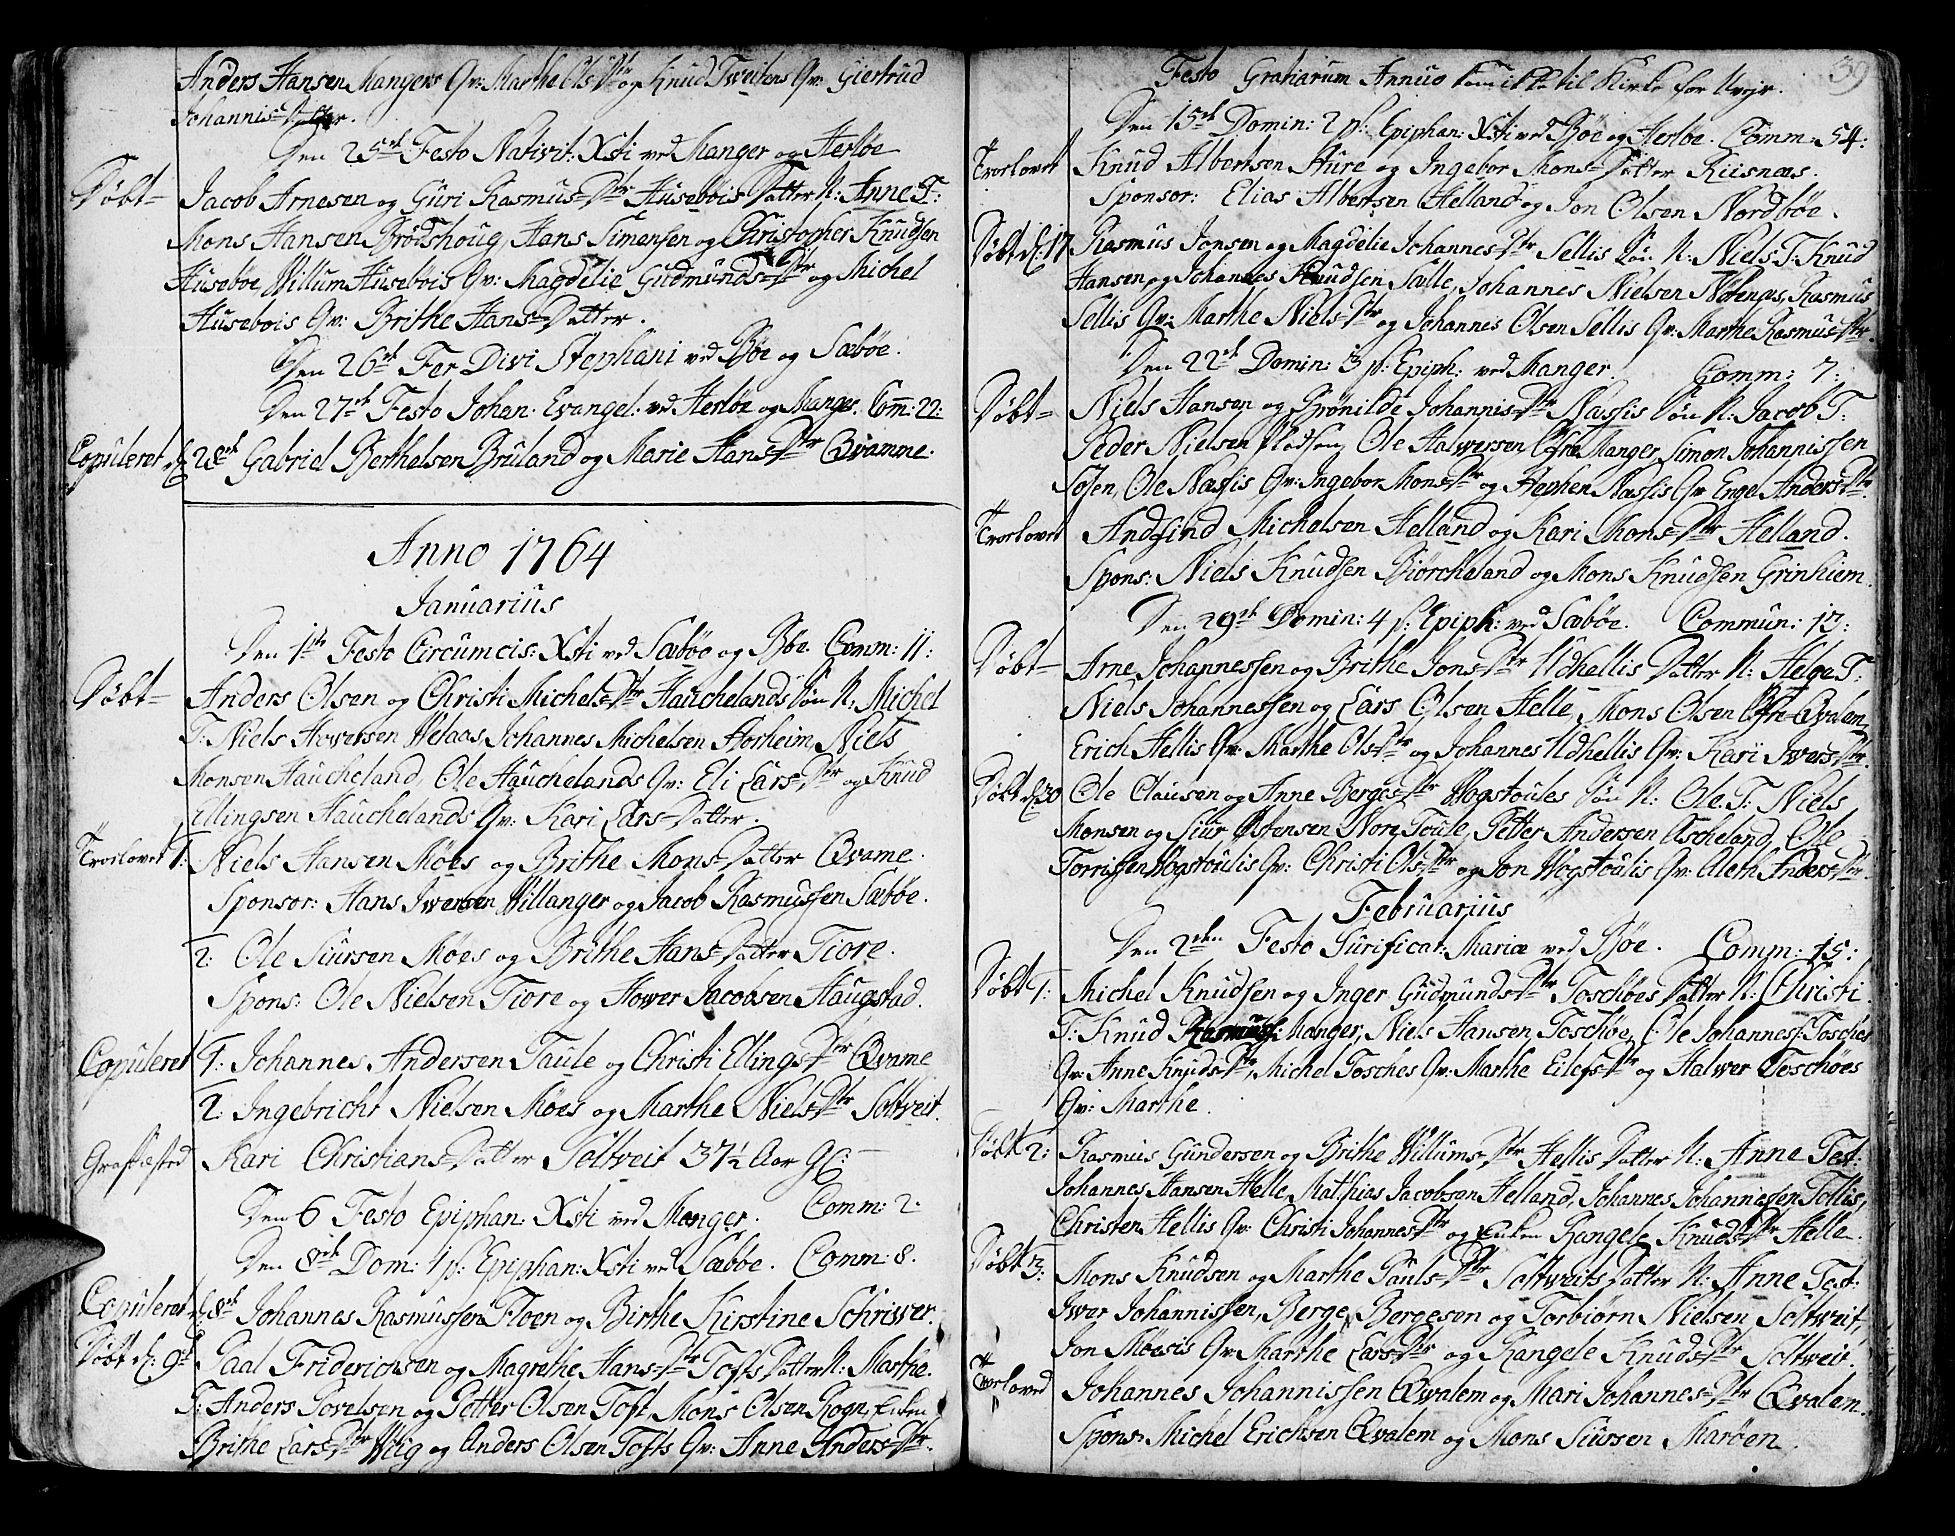 Anders Hansen Mangers Qv: Marthe Ols Dtr og Knud Tweitens Qv: Giertrud
Johannis Datter.
Den 25de Festo Nativit: Xsti ved Manger og Herløe
Døbt Jacob Arnesen og Guri Rasmus Dtr Husebøis Datter N: Anne T:
Mons Hansen Brødshoug, Hans Simensen og Christopher Knudsen
Husebøe, Willum Husebøis Qv: Magdelie Gudmunds Dtr og Michel
Husebøis Qv: Brithe Hans Datter.
Den 26de Fer Divi Stephani ved Bøe og Sæbøe.
Den 27de Festo Johan: Evangel: ved Herløe og Manger. Com: 22:
Copuleret d: 28de Gabriel Berthelsen Bruland og Marie Hans Dtr Qvamme.
Anno 1764
Januarius
Den 1ste Festo Circumcis: Xsti ved Sæbøe og Bøe. Comm: 11:
Døbt Anders Olsen og Christi Michels Dtr Hauchelands Søn N: Michel
T: Niels Howersen Welaas, Johannes Michelsen Horheim, Niels
Monsen Haucheland, Ole Hauchelands Qv: Eli Lars Dtr og Knud
Ellingsen Hauchelands Qv: Kari Lars Datter.
Troelovet 1: Niels Hansen Møes og Brithe Mons Datter Qvame.
Sponsor: Hans Iwersen Willanger og Jacob Rasmussen Sæbøe.
2: Ole Siursen Møes og Brithe Hans Datter Tiore.
Spons: Ole Nielsen Tiore og Hower Jacobsen Haugstad.
Copuleret 1: Johannes Andersen Taule og Christi Ellings Dtr Qvame
2: Ingebricht Nielsen Møes og Marthe Niels Dtr Soltveit.
Grafkæsted Kari Christians Datter Soltveit 37½ Aar Gl:
Den 6 Festo Epiphan: Xsti ved Manger. Comm: 2:
Den 8de Dom: 1 p: Epiphan: Xsti ved Sæbøe. Comm: 8.
Copuleret d: 8de Johannes Rasmussen Floen og Birthe Kirstine Schriwer.
Døbt d: 9de Paal Friderichsen og Magrethe Hans Dtr Tofts Datter N: Marthe.
T: Anders Povelsen og Petter Olsen Toft, Mons Olsen Rogn, Enken
Brithe Lars Dtr Wiig og Anders Olsen Tofts Qv: Anne Anders Dtr.
39
Festo Gratiarum Annuo kom ikke til Kirke for Uvejr.
Den 15de Domin: 2 p: Epiphan: Xsti ved Bøe og Herløe. Comm: 54:
Troelovet Knud Albertsen Hure og Ingebor Mons Datter Riisnæs.
Sponsor: Elias Albertsen Helland og Jon Olsen Nordbøe.
Døbt d: 17 Rasmus Jonsen og Magdelie Johannes Dtr Sellis Søn N: Niels T: Knud
Hansen og Johannes Knudsen Sælle, Johannes Nielsen Norenæs, Rasmus
Sellis Qv: Marthe Niels Dtr og Johannes Olsen Sellis Qv: Marthe Rasmus Dtr.
Den 22de Domin: 3 p: Epiph: ved Manger. Comm: 7:
Døbt Niels Hansen og Brønilde Johannis Dtr Nassis Søn N: Jacob T:
Peder Nielsen Pladsen, Ole Halwersen Øfre Manger, Simon Johannissen
Tosen, Ole Nassis Qv: Ingebor Mons Dtr og Stephen Nassis Qv: Engel Anders Dtr.
Troelovet Andfind Michelsen Helland og Kari Mons Dtr Helland.
Spons: Niels Knudsen Biørcheland og Mons Knudsen Grinhiem.
Den 29de Domin: 4 p: Epiph: ved Sæbøe. Commun: 13:
Døbt Arne Johannessen og Brithe Jons Dtr Udhellis Datter N: Helge T:
Niels Johannessen og Lars Olsen Helle, Mons Olsen Øfre Qvalen,
Erich Hellis Qv: Marthe Ols Dtr og Johannes Udhellis Qv: Kari Iwers Dtr.
Døbt d: 30 Ole Clausen og Anne Berges Dtr Hogstoules Søn N: Ole T: Niels
Monsen og Siur Østensen Nore Toule, Petter Andersen Ascheland, Ole
Torrissen Hogstoulis Qv: Christi Ols Dtr og Jon Hogstoulis Qv: Aleth Anders Dtr.
Februarius
Den 2den Festo Purificat: Mariæ ved Bøe. Comm: 15:
Døbt 1: Michel Knudsen og Inger Gudmunds Dtr Toschøes Datter N: Christi
T: Knud Rasmuss: Manger, Niels Hansen Toschøe, Ole Johannes: Tosches
Qv: Anne Knuds Dtr, Michel Tosches Qv: Marthe Eilefs Dtr og Halwer Toschøes
Qv: Marthe.
Døbt 2: Rasmus Gundersen og Brithe Willums Dtr Hellis Datter N: Anne Test:
Johannes Hansen Helle, Mathias Jacobsen Helland, Johannes Johannessen Tollis,
Christen Hellis Qv: Christi Johannes Dtr og Enken Rangele Knuds Dtr Helle.
Døbt 3: Mons Knudsen og Marthe Pauls Dtr Soltweits Datter N: Anne Test:
Iwer Johannissen, Berge Bergesen og Torbiørn Nielsen Soltweit,
Jon Møesis Qv: Marthe Lars Dtr og Rangele Knuds Dtr Soltweit.
Troeloved Johannes Johannissen Qvalem og Mari Johannes Dtr Qvalem.
Spons: Michel Erichsen Qvalem og Mons Siursen Marøen.